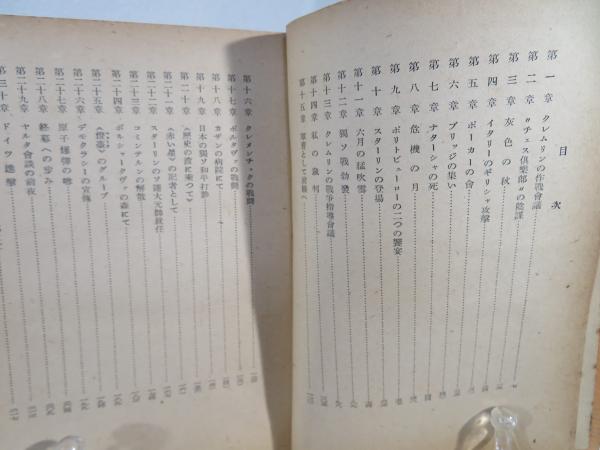 目次
第一章 クレムリンの作戦会議
第二章 〃チェス倶楽部〃の陰謀
第三章 灰色の秋
第四章 イタリーのギリシャ攻撃
第五章 ポーカーの會
第六章 ブリッジの集い
第七章 ナターシャの死
第八章 危機の月
第九章 ポリトビューローの二つの饗宴
第十章 スターリンの登場
第十一章 六月の猛吹雪
第十二章 獨ソ戰勃發
第十三章 クレムリンの戰爭指導會議
第十四章 私の裁判
第十五章 軍醫として前線へ
第十六章 クレメンチュクの戰鬪
第十七章 ポルタヴァの戰鬪
第十八章 カザンの病院にて
第十九章 日本の獨ソ和平打診
第二十章 《歴史の波に乗つて》
第二十一章 《赤い星》の記者として
第二十二章 スターリンのソ聯大元帥就任
第二十三章 コミンテルンの解散
第二十四章 ボルシャークヴァの森にて
第二十五章 《燈臺》のグループ
第二十六章 デモクラシーの宣傳
第二十七章 原子爆彈の噂
第二十八章 終幕への歩み
第二十九章 ヤルタ會談の前夜
第三十章 ドイツ進擊